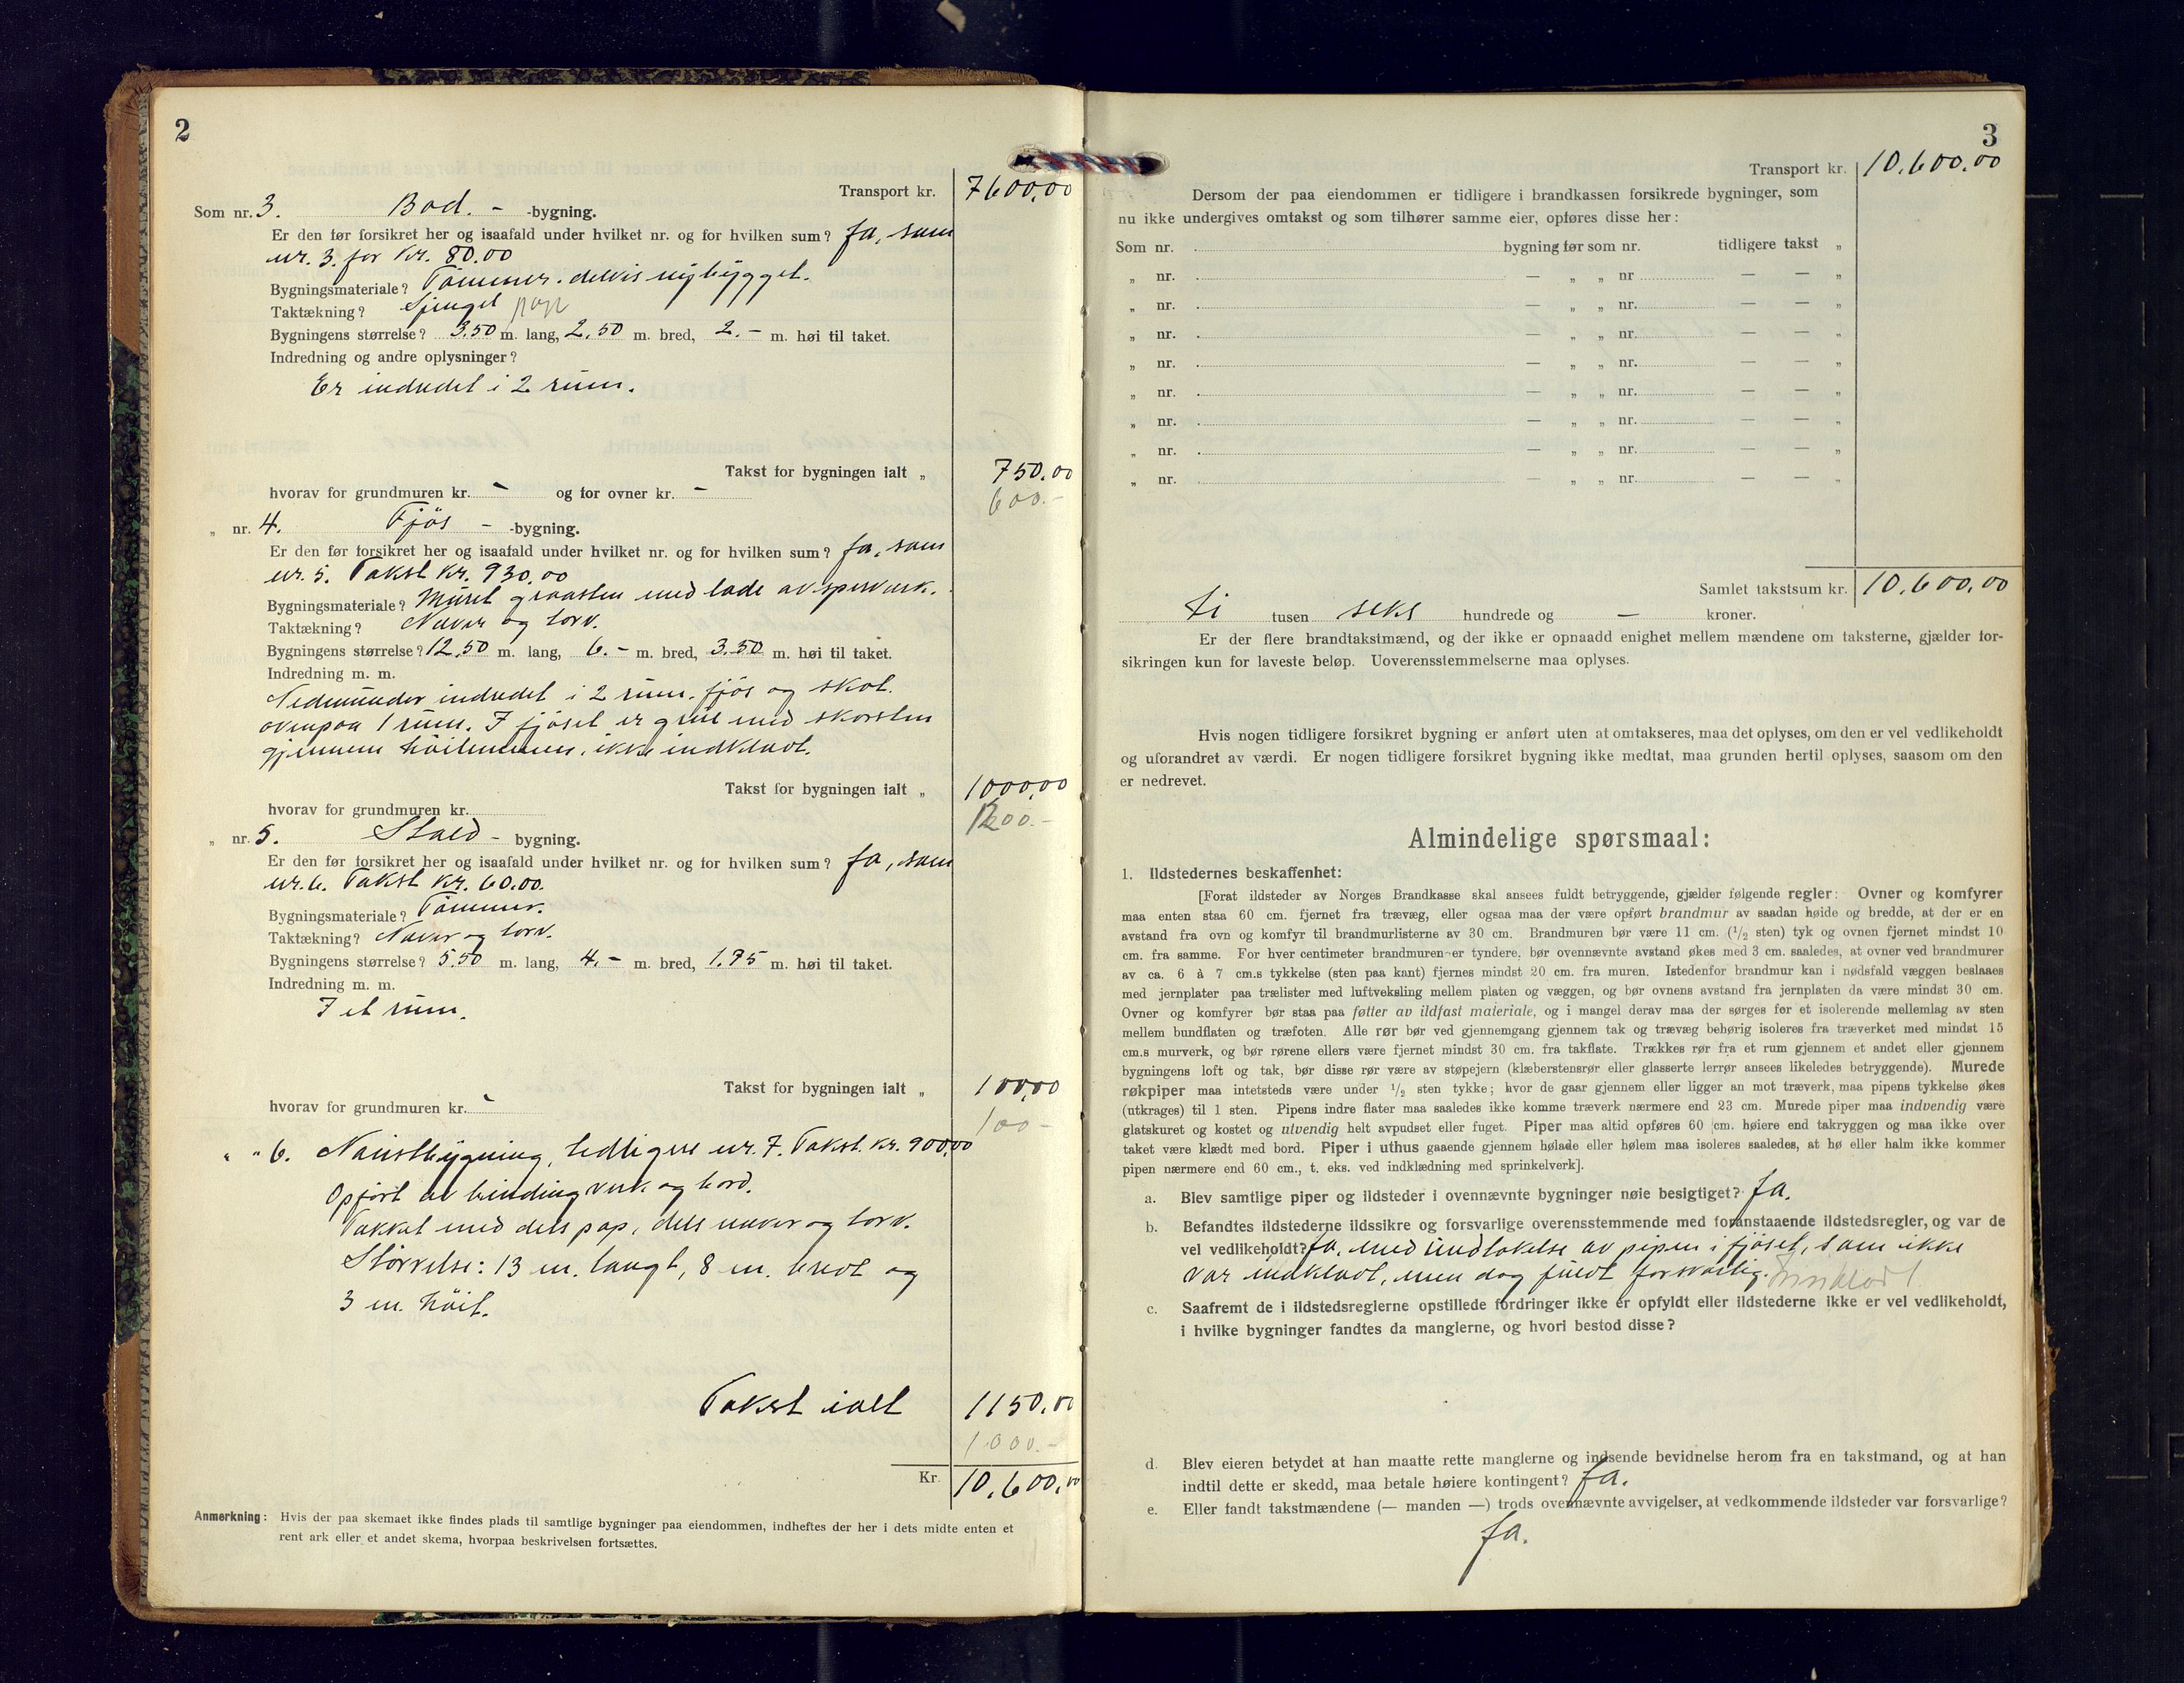 2
Transport kr. 7600,00
Som nr. 3. Bod. - -bygning.
Er den før forsikret her og isaafald under hvilket nr. og for hvilken sum? Ja, som
nr. 3. for Kr. 80.00
Bygningsmateriale? Tømmer. delvis nybygget.
Taktækning? Spingel pap
Bygningens størrelse? 3.50 m. lang, 2.50 m. bred, 2.- m. høi til taket.
Indredning og andre oplysninger?
Er indredet i 2 rum.
Takst for bygningen ialt „ 750.00
hvorav for grundmuren kr. - og for ovner kr. -
600.-
„ nr. 4. Fjøs - -bygning.
Er den før forsikret her og isaafald under hvilket nr. og for hvilken sum? Ja, som
nr. 5. Takst Kr. 930.00
Bygningsmateriale? Muret graasten med lade av sperverk.
Taktækning? Næver og torv.
Bygningens størrelse? 12.50 m. lang, 6.- m. bred, 3.50 m. høi til taket.
Indredning m. m.
Nedenunder indredet i 2 rum. fjøs og skot.
ovenpaa 1 rum. I fjøset er grue med skorsten
gjennem höilemmen, ikke indklædt.
Takst for bygningen ialt „ 1000,00
hvorav for grundmuren kr.
1200.-
„ nr. 5. Stald - bygning.
Er den før forsikret her og isaafald under hvilket nr. og for hvilken sum? Ja, som
nr. 6. Takst Kr. 60.00.
Bygningsmateriale? Tømmer.
Taktækning? Næver og torv.
Bygningens størrelse? 5.50 m. lang, 4.- m. bred, 1.75 m. høi til taket.
Indredning m. m.
I et rum.
Takst for bygningen ialt „ 100,00
hvorav for grundmuren kr. -
100-
„ „ 6. Naustbygning, tidligere nr. 7. Takst. Kr. 900.00
Opført av bindingverk og bord.
Takket med dels pap, dels næver og torv.
Størrelse: 13 m. langt, 8 m. bredt og
3 m. höit.
Takst ialt 1150.00
1000.-
Kr. 10.600.00
Anmerkning: Hvis der paa skemaet ikke findes plads til samtlige bygninger paa eiendommen, indheftes der her i dets midte enten et
rent ark eller et andet skema, hvorpaa beskrivelsen fortsættes.
3
Transport kr. 10.600.00
Dersom der paa eiendommen er tidligere i brandkassen forsikrede bygninger, som
nu ikke undergives omtakst og som tilhører samme eier, opføres disse her:
Som nr. bygning før som nr. tidligere takst „
„ nr. — „ „ nr — — „
„ nr. — „ „ nr. — — „
„ nr. — „ „ nr. — — „
„ nr. — „ „ nr. — — „
„ nr. — „ „ nr. — — „
„ nr. — „ „ nr. — — „
„ nr. — „ „ nr. — — „
„ nr. — „ „ nr. — — „
Samlet takstsum kr. 10.600,00
ti tusen seks hundrede og — kroner.
Er der flere brandtakstmænd, og der ikke er opnaadd enighet mellem mændene om taksterne, gjælder for-
sikringen kun for laveste beløp. Uoverensstemmelserne maa oplyses.
Hvis nogen tidligere forsikret bygning er anført uten at omtakseres, maa det oplyses, om den er vel vedlikeholdt
og uforandret av værdi. Er nogen tidligere forsikret bygning ikke medtat, maa grunden hertil oplyses, saasom om den
er nedrevet.
Almindelige spørsmaal:
1. Ildstedernes beskaffenhet:
[Forat ildsteder av Norges Brandkasse skal ansees fuldt betryggende, gjælder følgende regler: Ovner og komfyrer
maa enten staa 60 cm. fjernet fra trævæg, eller ogsaa maa der være opført brandmur av saadan høide og bredde, at der er en
avstand fra ovn og komfyr til brandmurlisterne av 30 cm. Brandmuren bør være 11 cm. (1/2 sten) tyk og ovnen fjernet mindst 10
cm. fra samme. For hver centimeter brandmuren er tyndere, bør ovennævnte avstand økes med 3 cm. saaledes, at ovner ved brandmurer
av ca. 6 à 7 cm.s tykkelse (sten paa kant) fjernes mindst 20 cm. fra muren. Istedenfor brandmur kan i nødsfald væggen beslaaes
med jernplater paa trælister med luftveksling mellem platen og væggen, og bør ovnens avstand fra jernplaten da være mindst 30 cm.
Ovner og komfyrer bør staa paa føtter av ildfast materiale, og i mangel derav maa der sørges for et isolerende mellemlag av sten
mellem bundflaten og træfoten. Alle rør bør ved gjennemgang gjennem tak og trævæg behørig isoleres fra træverket med mindst 15
cm.s murverk, og bør rørene ellers være fjernet mindst 30 cm. fra takflate. Trækkes rør fra et rum gjennem et andet eller gjennem
bygningens loft og tak, bør disse rør være av støpejern (klæberstensrør eller glasserte lerrør ansees likeledes betryggende). Murede
røkpiper maa intetsteds være under 1/2 sten tykke; hvor de gaar gjennem eller ligger an mot træverk, maa pipens tykkelse økes
(utkrages) til 1 sten. Pipens indre flater maa saaledes ikke komme træverk nærmere end 23 cm. Murede piper maa indvendig være
glatskuret og kostet og utvendig helt avpudset eller fuget. Piper maa altid opføres 60 cm. høiere end takryggen og maa ikke over
taket være klædt med bord. Piper i uthus gaaende gjennem hølade eller hølem maa isoleres saaledes, at hø eller halm ikke kommer
pipen nærmere end 60 cm., t. eks. ved indklædning med sprinkelverk].
a. Blev samtlige piper og ildsteder i ovennævnte bygninger nøie besigtiget? Ja.
b. Befandtes ildstederne ildssikre og forsvarlige overensstemmende med foranstaaende ildstedsregler, og var de
vel vedlikeholdt? Ja, med undtakelse av pipen i fjøset, som ikke
var indklædt, men dog fuldt forsvarlig.
c. Saafremt de i ildstedsreglerne opstillede fordringer ikke er opfyldt eller ildstederne ikke er vel vedlikeholdt,
i hvilke bygninger fandtes da manglerne, og hvori bestod disse?
d. Blev eieren betydet at han maatte rette manglerne og indsende bevidnelse herom fra en takstmand, og at han
indtil dette er skedd, maa betale høiere kontingent? Ja.
e. Eller fandt takstmændene (— manden —) trods ovennævnte avvigelser, at vedkommende ildsteder var forsvarlige?
Ja.